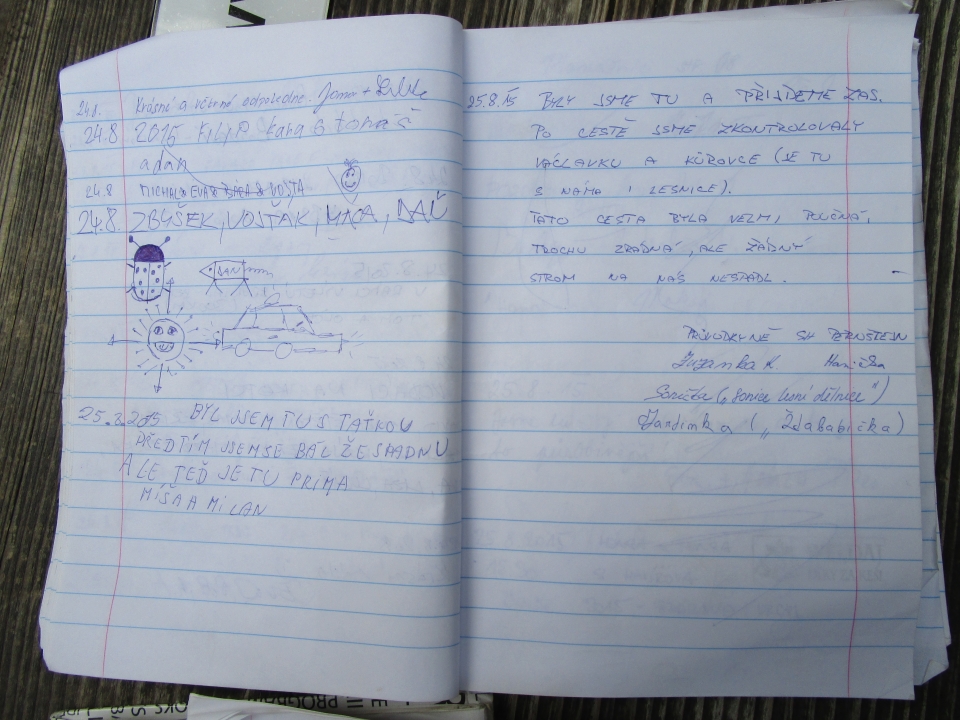 24.8. Krásné a větrné odpoledne. Jana +
24.8 2015 FILIP kána & tomáš
adam
24.8 MICHAL & EVA & BÁRA & VOJTA
24.8. ZBYŠEK, VOJTAK, MÁCA,
DAN
25.8.2015 BYL JSEM TU S TAŤKOU
PŘEDTÍM JSEM SE BÁL ŽE SPADNU
ALE TEĎ JE TU PRIMA
MÍŠA A MILAN
25.8.15 BYLY JSME TU A PŘIJDEME ZAS.
PO CESTĚ JSME ZKONTROLOVALY
VÁCLAVKU A KŮROVCE (JE TU
S NÁMA I LESNICE).
TATO CESTA BYLA VELMI POUČNÁ,
TROCHU ZRADNÁ, ALE ŽÁDNÝ
STROM NA NÁS NESPADL.
PRŮVODKYNĚ SH PERNŠTEJN
Zuzanka K. Hanička
Sonička („Sonice lesní dělnice")
Jandinka („Ždababička)
PROGRA